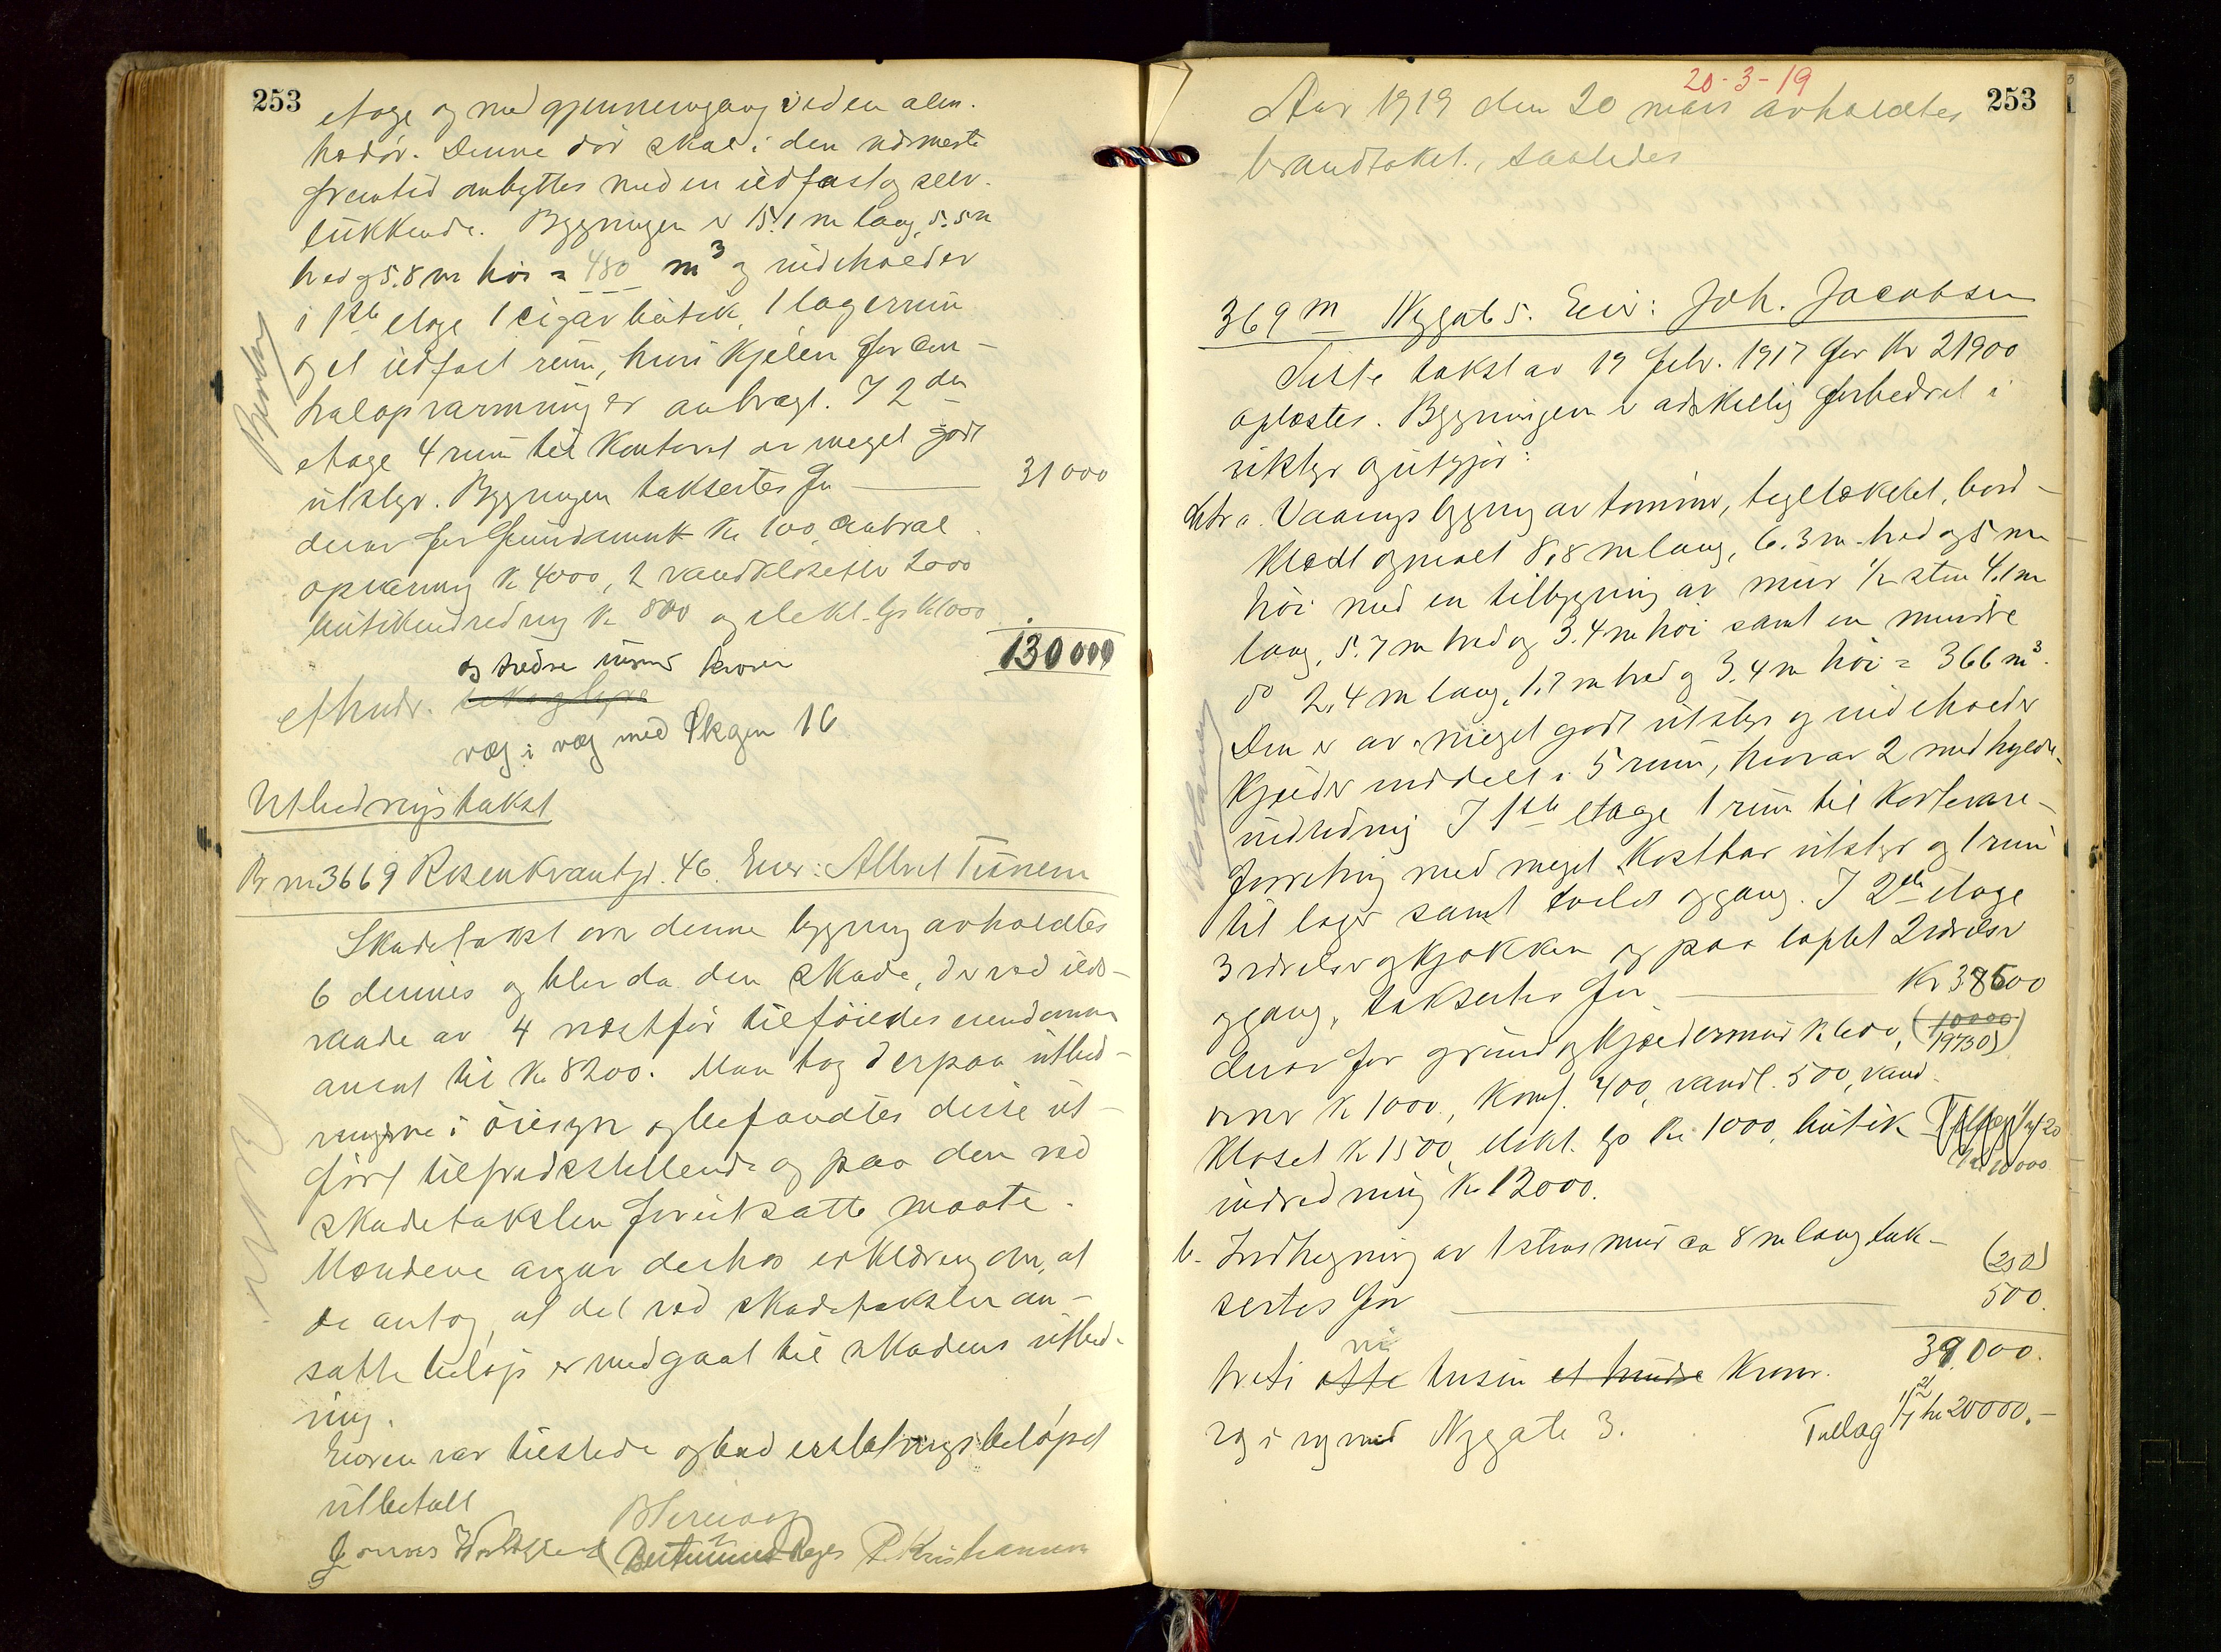 253
etage og med gjennemgang ved en alm.
trædör. Denne dör skal i den nærmeste
fremtid ombyttes med en ildfast og selv-
lukkende. Bygningen er 15.1 m lang, 5.5 m
bred og 5.8 m höi = 480 m³ og indeholder
i 1ste etage 1 cigarbutik, 1 lagerrum
og et ildfast rum, hvori kjelen for cen-
tralopvarmning er anbragt. I 2den
etage 4 rum til kontorer av meget godt
utstyr. Bygningen taksertes for 31000
derav for fundament kr 100, central
opvarmng kr 4000, 2 vandklosetter 2000
butikindredning kr 800 og elekt. lys kr 1000
130000
og tredve tusend kroner
ethundr.
væg i væg med Skagen 16
Utbedringstakst
Br nr 3669 Rosenkrantzgt. 46. Eier: Albret Tünem
Skadetakst over denne bygning avholdtes
6 dennes og blev da den skade, der ved ilds-
vaade av 4 næstför tilföiedes eiendommen
ansat til kr 8200. Man tog derpaa utbed-
ringerne i öiesyn og befandtes disse ut-
fört tilfredsstillende og paa den ved
skadetaksten forutsatte maate.
Mændene avgav derhos erklæring om, at
de antog, at det ved skadetaksten an-
satte belöp er medgaat til skadens utbed-
ring.
Eieren var tilstede og bad erstatningsbelöpet
utbetalt
P Kristiansen
20-3-19
253
Aar 1919 den 20 mars avholdtes
brandtakst, saaledes
369 m Nygat 5. Eier: Joh. Jacobsen
Siste takst av 19 febr. 1917 for Kr 21900
oplæstes. Bygningen er adskillig forbedret i
utstyr og utgjör:
Litr a. Vaaningsbygning av tömmer, tegltækket, bord-
klædt og malt 8.8 m lang, 6.3 m bred og 5 m
höi med en tilbygning av mur ½ sten 4.1 m
lang, 5.7 m bred og 3.4 m höi samt en mindre
do 2.4 m lang, 1.7 m bred og 3.4 m höi = 366 m³.
Den er av meget godt utstyr og indeholder
Kjælder inddelt i 5 rum, hvorav 2 med hylde-
indredning I 1ste etage 1 rum til Kortevare-
forretning med meget kostbar utstyr og 1 rum
til lager samt toilet og gang. I 2den etage
3 værelser og kjökken og paa loftet 2 værelser
og gang, taksertes for Kr 38500
derav for grund og kjældermur kr 600, (10000
19750)
ovner kr 1000, komf. 400, vandl. 500, vand-
kloset kr 1500, elekt. lys kr 1000, butik
indredning kr 12000.
10000
b. Indhegning av 1 stens mur ca 8 m lang tak-
(250)
sertes for 500.
39,000.
ni
treti otte tusen et hundre Kroner.
væg i væg med Nygate 3.
Tillag kr 20000.-